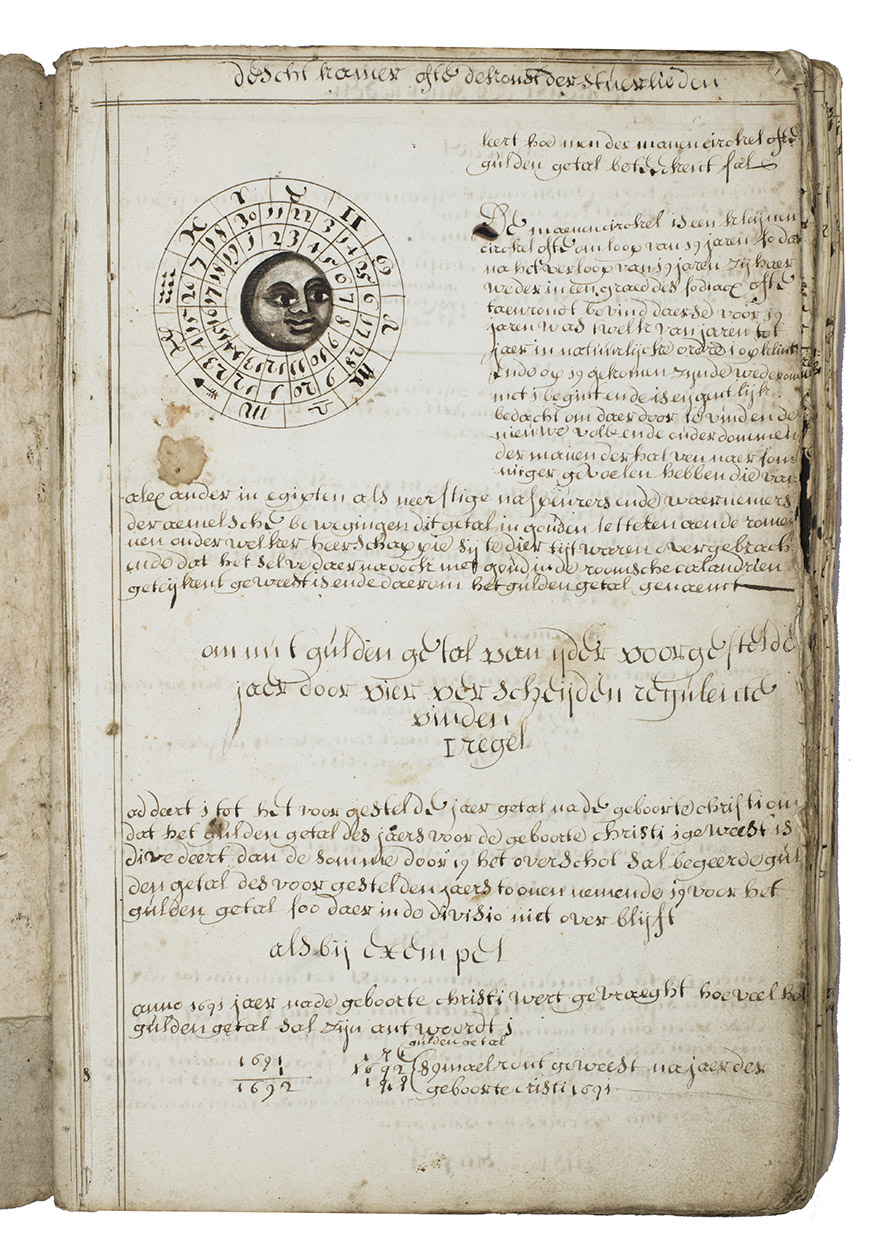 de scht kamer ofte de konst der stuerlieden
leert hoe men der manen circkel ofte
gulden getal bereeckent sal
De maenen circkel is een kleijnen
circkel ofte omloop van 19 jaren so dat
na het verloop van 19 jaren zij haer
weder in een graed des sodiacx ofte
taenrondt bevind daerse voor 19
jaren was welk van jaren tot
jaer in natuurlijcke ordre 1 op klimt
ende op 19 gekomen zijnde wederom
met 1 begint ende is eijgentlijk
bedacht om daer door te vinden de
nieuwe volle ende ouderdommen
der manen der hal ven naer som
niger gevoelen hebben die van
alexander in egipten als neerstige naspeurers ende waernemers
der aemelsche bewegingen dit getal in gouden letteren aende rome
nen onder welker heerschappie sij te dier tijt waren overgebrach
ende dat het selve daer na oock met goud in de roomsche calandrien
geteijkent geweest is ende daerom het gulden getal genaemt
om nu t gulden getal van ijder voorgestelde
jaer door vier verscheijden regulen te
vinden
I regel
addeert 1 tot het voor gestelde jaer getal na de geboorte christi om
dat het gulden getal des jaers voor de geboorte christi 1 geweest is
divedeert dan de somme door 19 het overschot sal begeerde gul
den getal des voor gestelden jaers toonen nemende 19 voor het
gulden getal soo daer in de divisio niet over blijft
als bij exempel
anno 1691 jaer na de geboorte christi wert gevraeght hoe veel het
gulden getal sal zijn antwoordt 1
gulden getal
1691
1
1692
1692 (89 mael ront geweest na jaer der
geboorte cristi 1691